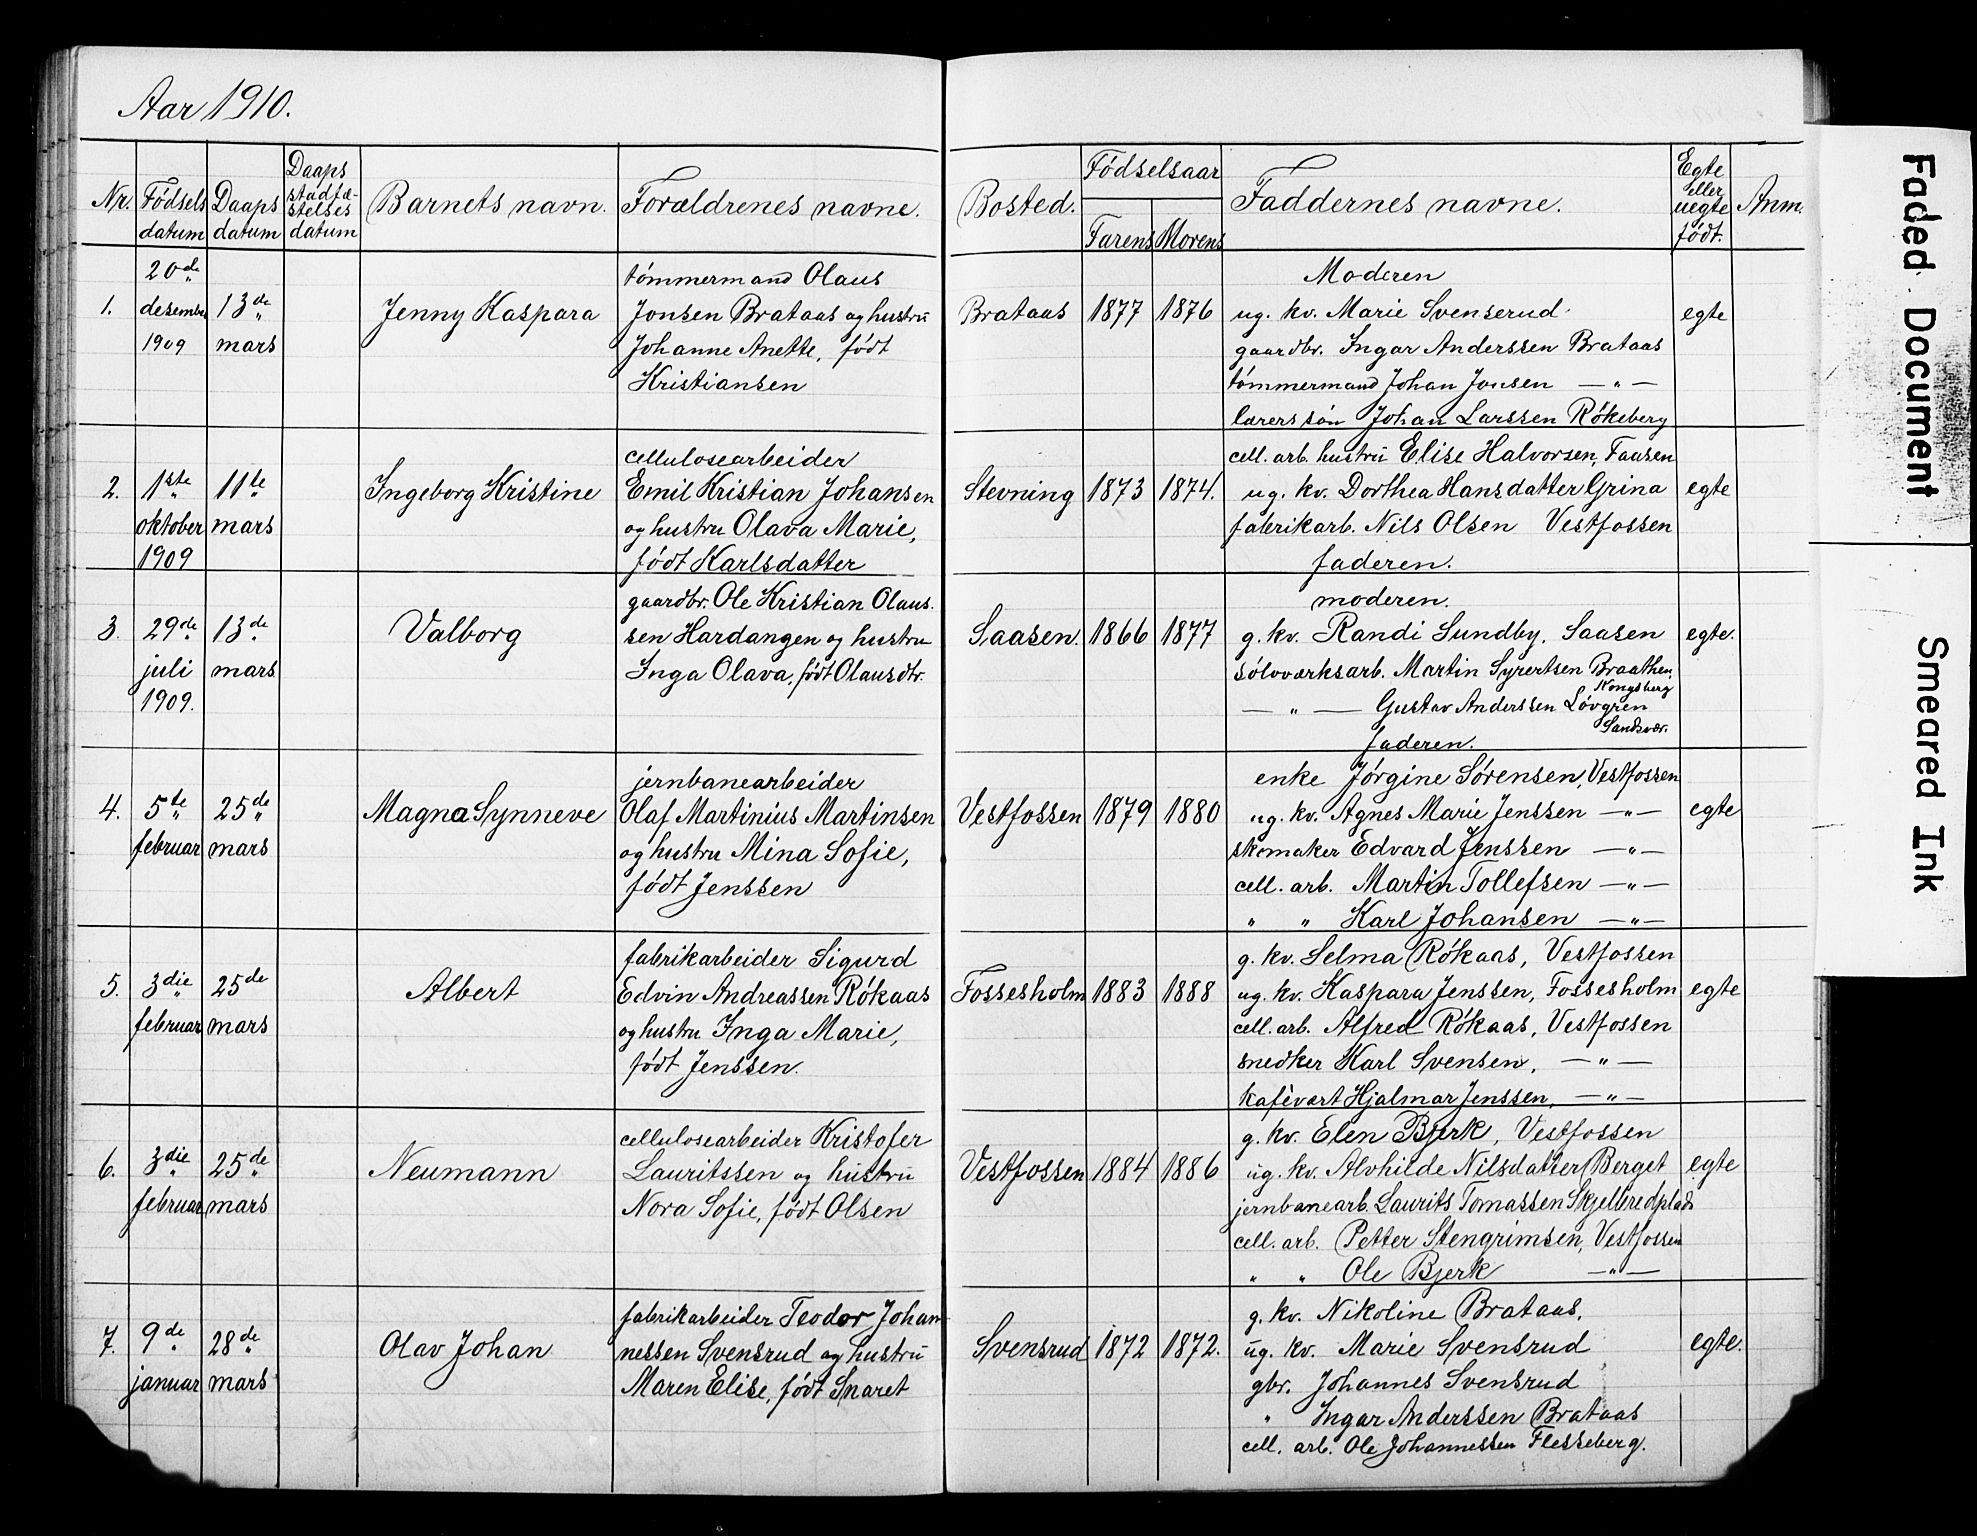 Aar 1910.
Nr. Fødsels datum Daaps datum Daaps stadfæ- stelses datum Barnets navn. Forældrenes navne. Bosted. Fødselsaar Farens Morens Faddernes navne. Egte eller uegte født. Anm.
1. 20de desember 1909 13de mars Jenny Kaspara
tømmermand Olaus
Jonsen Brataas og hustru
Johanne Anette, født
Kristiansen
Brataas 1877 1876
Moderen
ug. kv. Marie Svenserud
gaardbr. Ingar Anderssen Brataas
tømmermand Johan Jonsen — „ —
lærerssøn Johan Larssen Røkeberg
egte
2. 1ste oktober 1909 11te mars Ingeborg Kristine
cellulosearbeider
Emil Kristian Johansen
og hustru Olava Marie,
født Karlsdatter
Stevning 1873 1874.
cell. arb. hustru Elise Halvorsen, Faasen
ug. kv. Dorthea Hansdatter Grina
fabrikarb. Nils Olsen Vestfossen
faderen.
egte
3. 29de juli 1909. 13de mars Valborg
gaardbr. Ole Kristian Olaus-
sen Hardangen og hustru
Inga Olava, født Olausdtr.
Saasen. 1866 1877
moderen.
g. kv. Randi Sundby, Saasen
sølvværksarb. Martin Syvertsen Braathen,
Kongsberg
— „ — Gustav Anderssen Løvgren
Sandsvær.
faderen.
egte.
4. 5te februar 25de mars Magna Synneve
jernbanearbeider
Olaf Martinius Martinsen
og hustru Mina Sofie,
født Jenssen
Vestfossen 1879 1880
enke Jørgine Sørensen, Vestfossen
ug. kv. Agnes Marie Jenssen — „ —
skomaker Edvard Jenssen — „ —
cell. arb. Martin Tollefsen — „ —
„ „ Karl Johansen — „ —
egte
5. 3die februar 25de mars Albert
fabrikarbeider Sigurd
Edvin Andreassen Røkaas
og hustru Inga Marie,
født Jenssen.
Fossesholm 1883 1888
g. kv. Selma Røkaas, Vestfossen
ug. kv. Kaspara Jenssen, Fossesholm
cell. arb. Alfred Røkaas, Vestfossen
snedker Karl Svensen, — „ —
kafévært Hjalmar Jenssen, — „ —
egte
6. 3die februar 25de mars Neumann
cellulosearbeider Kristofer
Lauritssen og hustru
Nora Sofie, født Olsen
Vestfossen 1884 1886
g. kv. Elen Bjerk, Vestfossen
ug. kv. Alvhilde Nilsdatter Berget
jernbanearb. Laurits Tomassen Skjelbredplads
cell. arb. Petter Stengrimsen, Vestfossen
„ „ Ole Bjerk — „ —
egte
7. 9de januar 28de mars Olav Johan
fabrikarbeider Teodor Johan
nessen Svensrud og hustru
Maren Elise, født Snaret
Svensrud 1872 1872.
g. kv. Nikoline Brataas,
ug. kv. Marie Svensrud
gbr. Johannes Svensrud
„ Ingar Anderssen Brataas
cell. arb. Ole Johannessen Flesseberg.
egte.
Faded Document
Smeared Ink